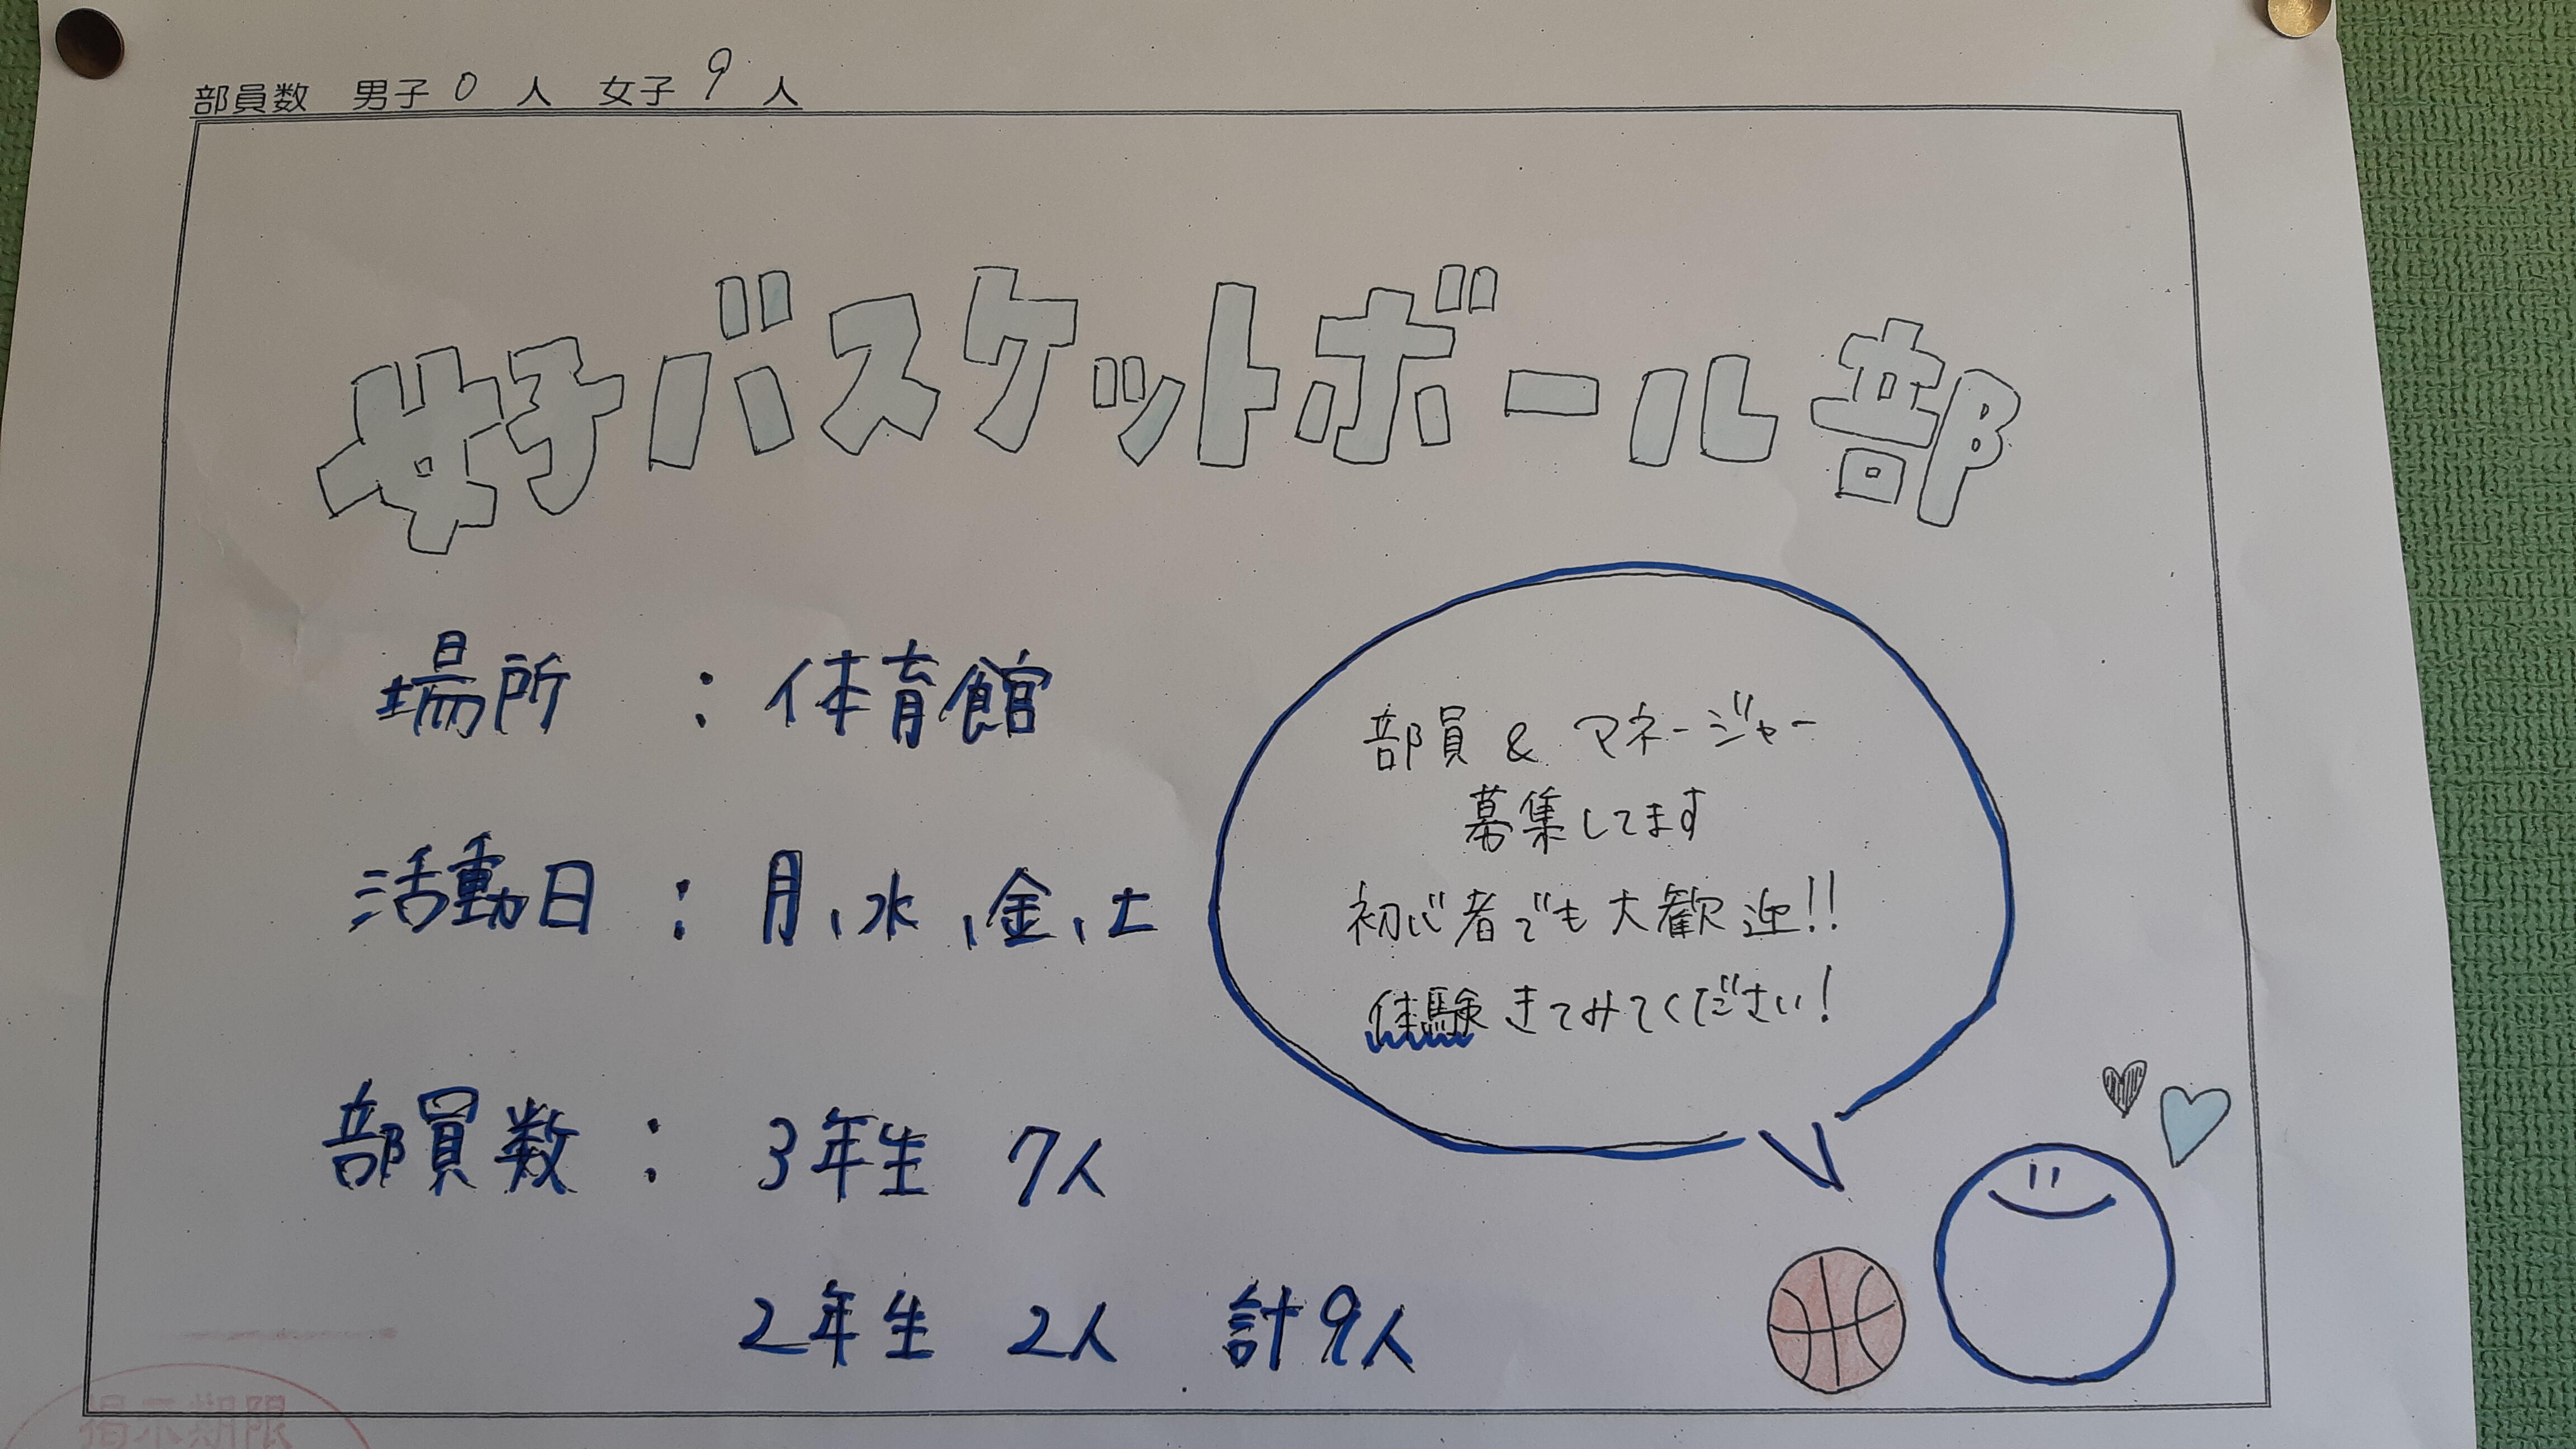 部員数 男子 0 人 女子 9 人
女子バスケットボール部
場所 : 体育館
活動日 : 月、水、金、土
部員数 : 3年生 7人
2年生 2人 計9人
部員 & マネージャー
募集してます
初心者でも大歓迎!!
体験きてみてください!
掲示期限